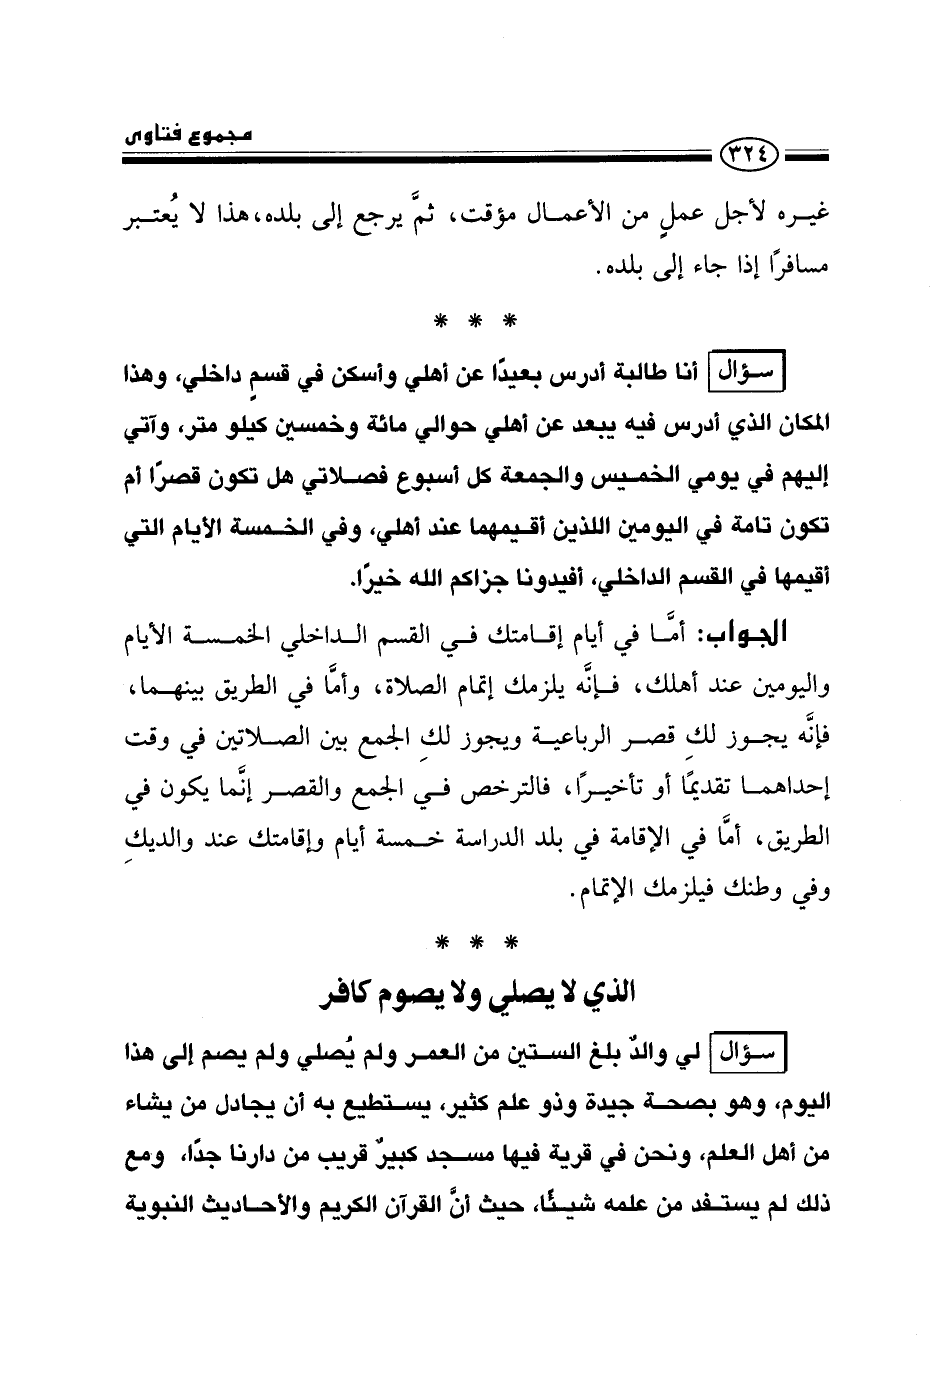 مجموع فتاوى
٣٢٤
غيره لأجل عملٍ من الأعمال مؤقت، ثمَّ يرجع إلى بلده، هذا لا يُعتبر
مسافرًا إذا جاء إلى بلده.
* * *
سؤال أنا طالبة أدرس بعيدًا عن أهلي وأسكن في قسمٍ داخلي، وهذا
المكان الذي أدرس فيه يبعد عن أهلي حوالي مائة وخمسين كيلو متر، وآتي
إليهم في يومي الخميس والجمعة كل أسبوع فصلاتي هل تكون قصرًا أم
تكون تامة في اليومين اللذين أقيمهما عند أهلي، وفي الخمسة الأيام التي
أقيمها في القسم الداخلي، أفيدونا جزاكم الله خيرًا.
الجواب: أمَّا في أيام إقامتك في القسم الداخلي الخمسة الأيام
واليومين عند أهلك، فإنَّه يلزمك إتمام الصلاة، وأمَّا في الطريق بينهما،
فإنَّه يجوز لكِ قصر الرباعية ويجوز لكِ الجمع بين الصلاتين في وقت
إحداهما تقديمًا أو تأخيرًا، فالترخص في الجمع والقصر إنَّما يكون في
الطريق، أمَّا في الإقامة في بلد الدراسة خمسة أيام وإقامتك عند والديكِ
وفي وطنك فيلزمك الإتمام.
* * *
الذي لا يصلي ولا يصوم كافر
سؤال لي والدٌ بلغ الستين من العمر ولم يُصلي ولم يصم إلى هذا
اليوم، وهو بصحة جيدة وذو علم كثير، يستطيع به أن يجادل من يشاء
من أهل العلم، ونحن في قرية فيها مسجد كبيرٌ قريب من دارنا جدًا، ومع
ذلك لم يستفد من علمه شيئًا، حيث أنَّ القرآن الكريم والأحاديث النبوية